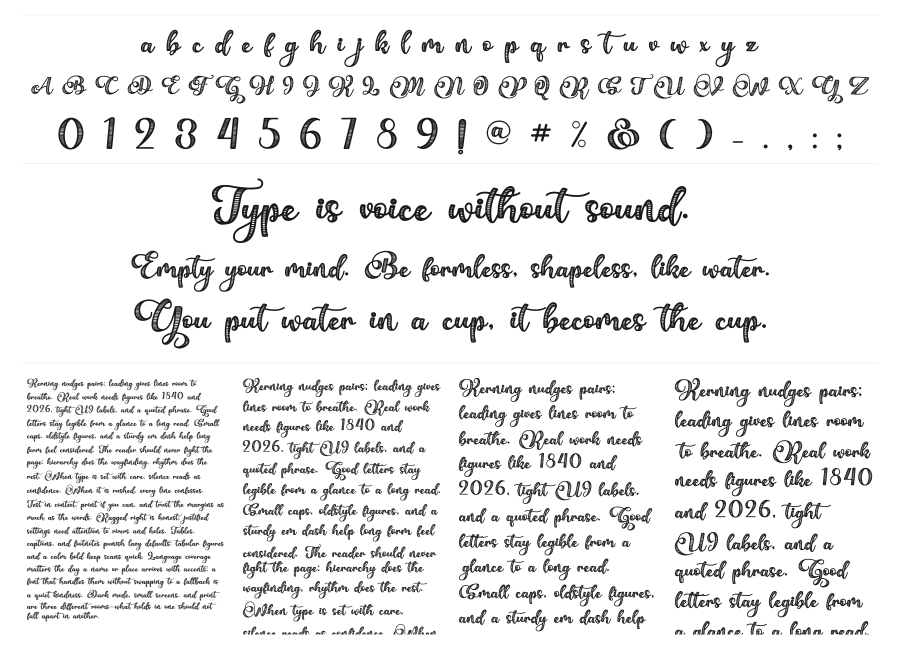 a b c d e f g h i j k l m n o p q r s t u v w x y z
A B C D E F G H I J K L M N O P Q R S T U V W X Y Z
0 1 2 3 4 5 6 7 8 9 ! @ # % & ( ) – . , : ;
Type is voice without sound.
Empty your mind. Be formless, shapeless, like water.
You put water in a cup, it becomes the cup.
Kerning nudges pairs; leading gives lines room to
breathe. Real work needs figures like 1840 and
2026, tight U19 labels, and a quoted phrase. Good
letters stay legible from a glance to a long read. Small
caps, oldstyle figures, and a sturdy em dash help long
form feel considered. The reader should never fight the
page: hierarchy does the wayfinding, rhythm does the
rest. When type is set with care, silence reads as
confidence. When it is rushed, every line confesses.
Test in context, print if you can, and trust the margins as
much as the words. Ragged right is honest; justified
settings need attention to rivers and holes. Tables,
captions, and footnotes punish lazy defaults; tabular figures
and a calm bold keep scans quick. Language coverage
matters the day a name or place arrives with accents; a
font that handles them without swapping to a fallback is
a quiet kindness. Dark mode, small screens, and print
are three different rooms—what holds in one should not
fall apart in another.
Kerning nudges pairs; leading gives
lines room to breathe. Real work
needs figures like 1840 and
2026, tight U19 labels, and a
quoted phrase. Good letters stay
legible from a glance to a long read.
Small caps, oldstyle figures, and a
sturdy em dash help long form feel
considered. The reader should never
fight the page: hierarchy does the
wayfinding, rhythm does the rest.
When type is set with care,
silence reads as confidence. When
Kerning nudges pairs;
leading gives lines room to
breathe. Real work needs
figures like 1840 and
2026, tight U19 labels,
and a quoted phrase. Good
letters stay legible from a
glance to a long read.
Small caps, oldstyle figures,
and a sturdy em dash help
Kerning nudges pairs;
leading gives lines room
to breathe. Real work
needs figures like 1840
and 2026, tight
U19 labels, and a
quoted phrase. Good
letters stay legible from
a glance to a long read.